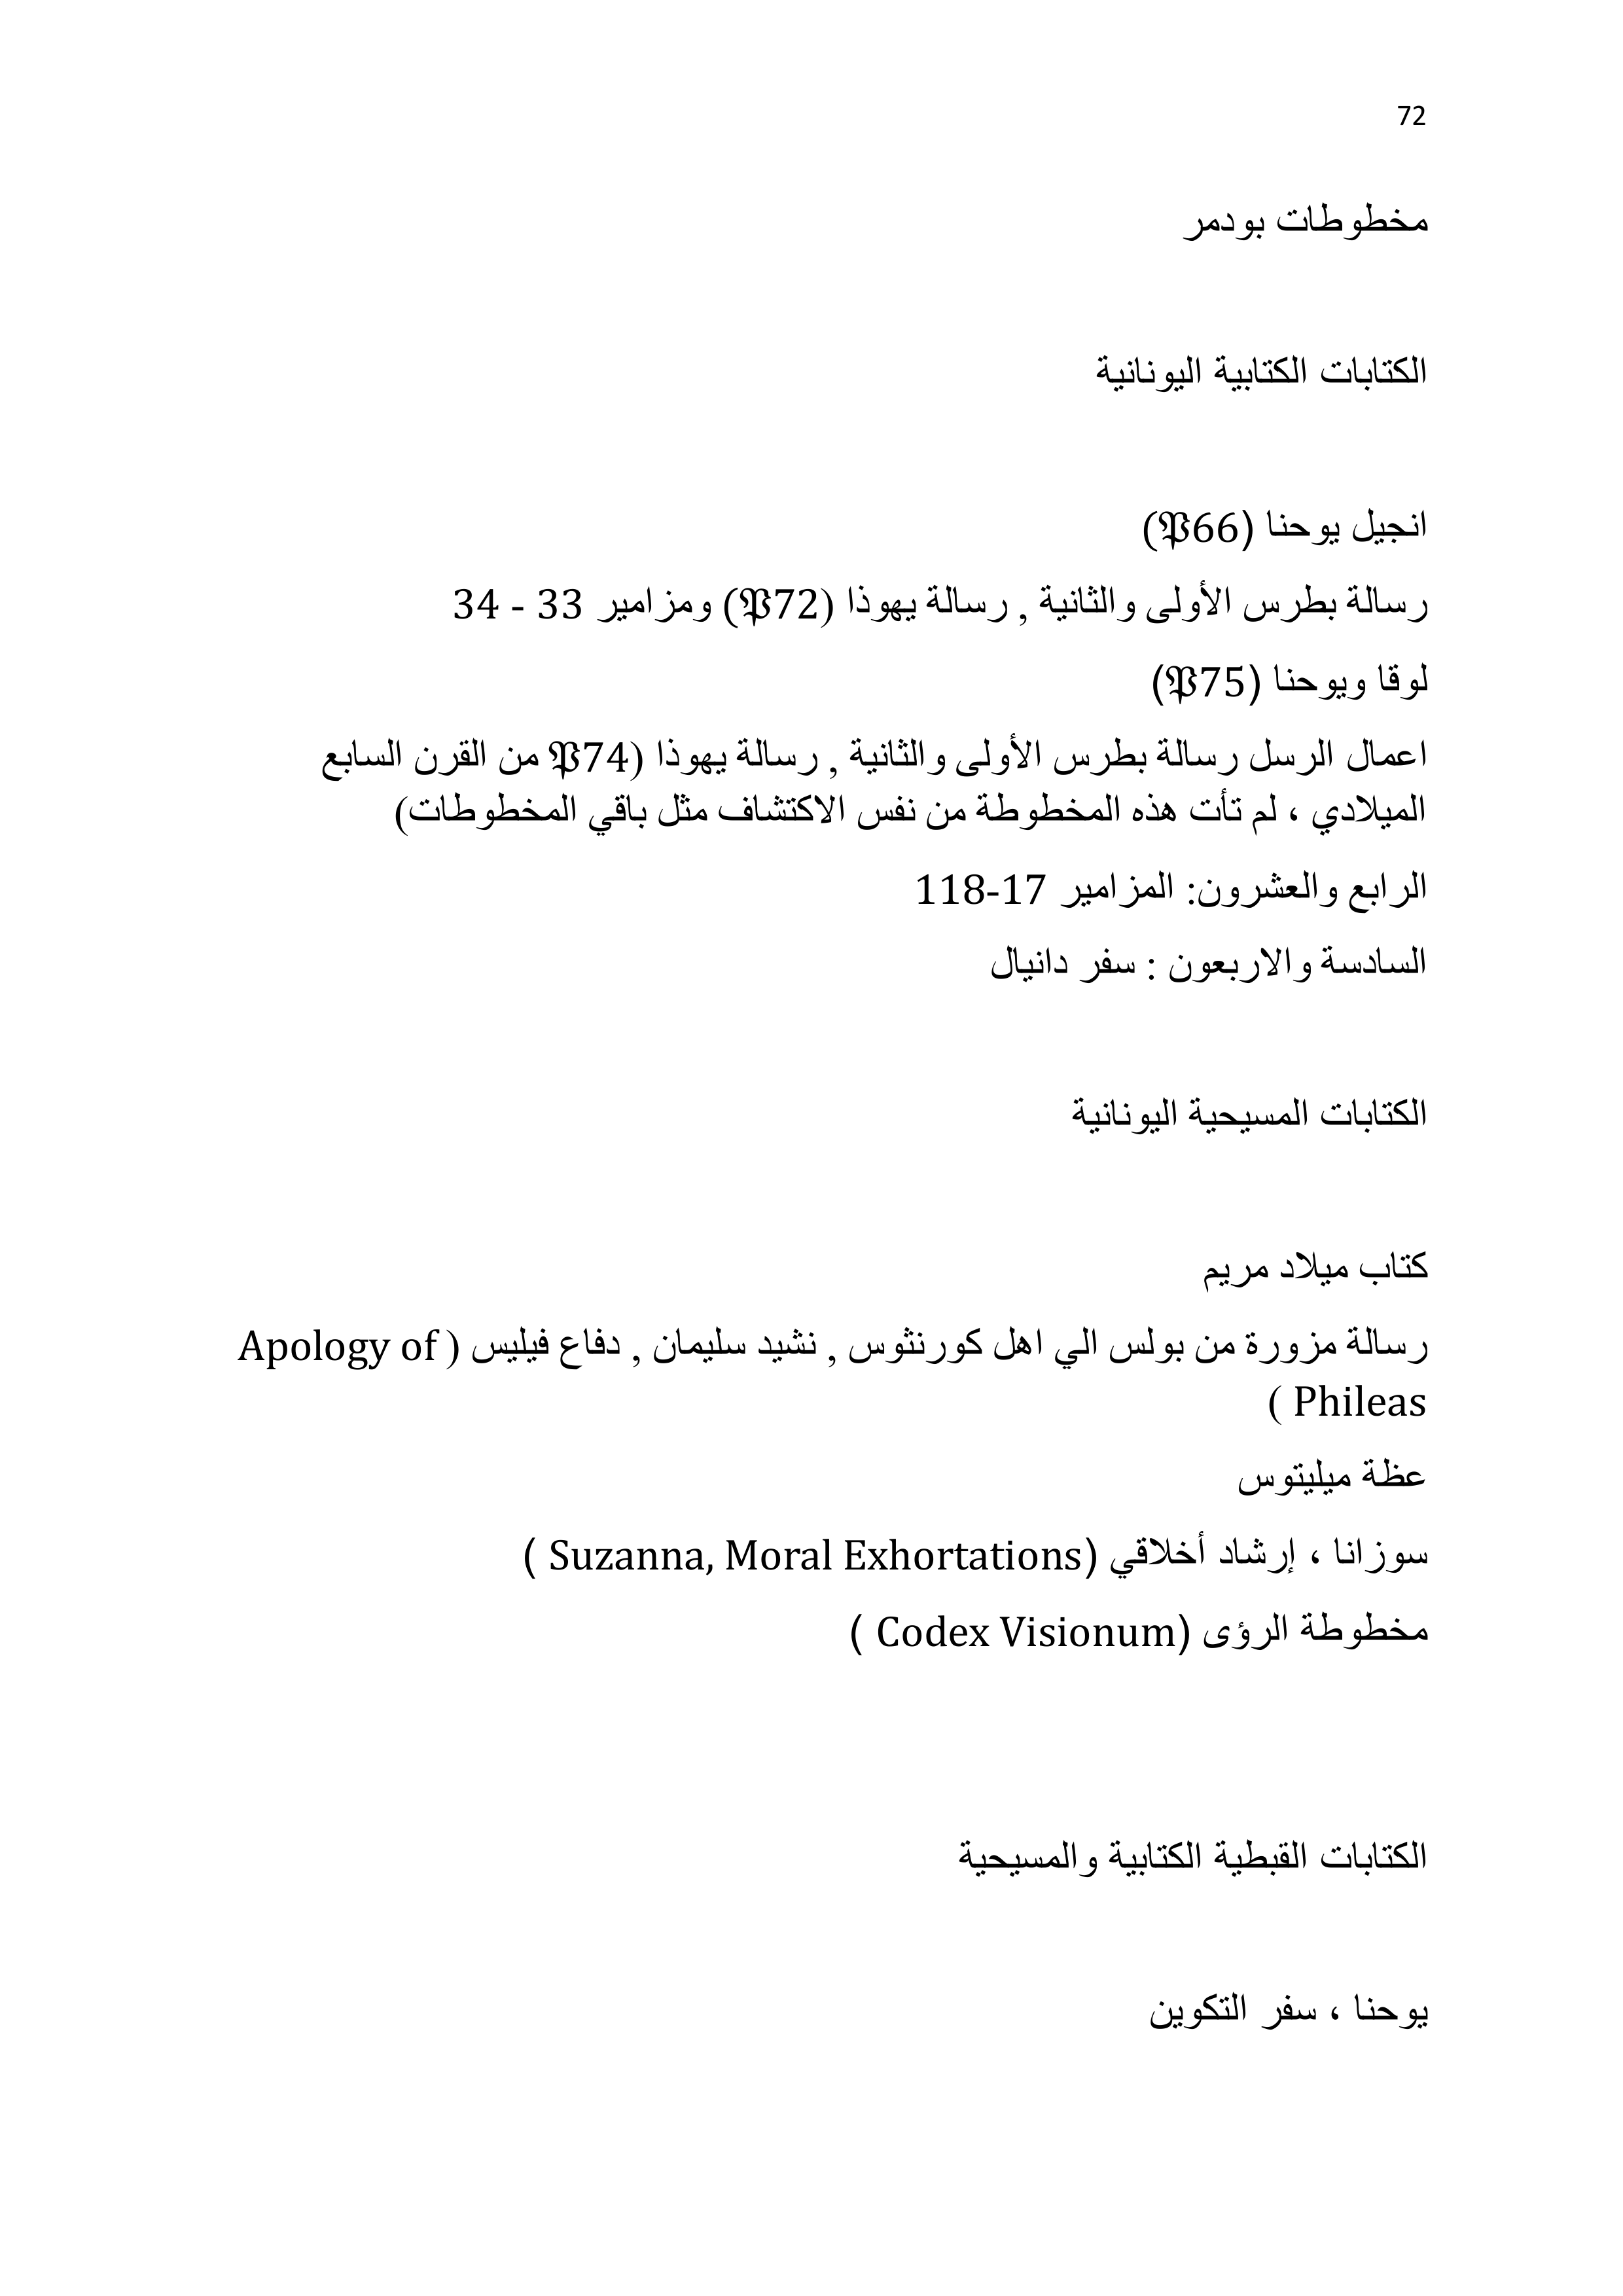 72
مخطوطات بودمر
الكتابات الكتابية اليونانية
انجيل يوحنا (𝔓66)
رسالة بطرس الأولى والثانية , رسالة يهوذا (𝔓72) ومزامير 33 - 34
لوقا ويوحنا (𝔓75)
اعمال الرسل رسالة بطرس الأولى والثانية , رسالة يهوذا (𝔓74 من القرن السابع
الميلادي ، لم تأت هذه المخطوطة من نفس الاكتشاف مثل باقي المخطوطات)
الرابع والعشرون: المزامير 17-118
السادسة والاربعون : سفر دانيال
الكتابات المسيحية اليونانية
كتاب ميلاد مريم
رسالة مزورة من بولس الي اهل كورنثوس , نشيد سليمان , دفاع فيليس ( Apology of
Phileas )
عظة ميليتوس
سوزانا ، إرشاد أخلاقي (Suzanna, Moral Exhortations )
مخطوطة الرؤى (Codex Visionum )
الكتابات القبطية الكتابية والمسيحية
يوحنا ، سفر التكوين